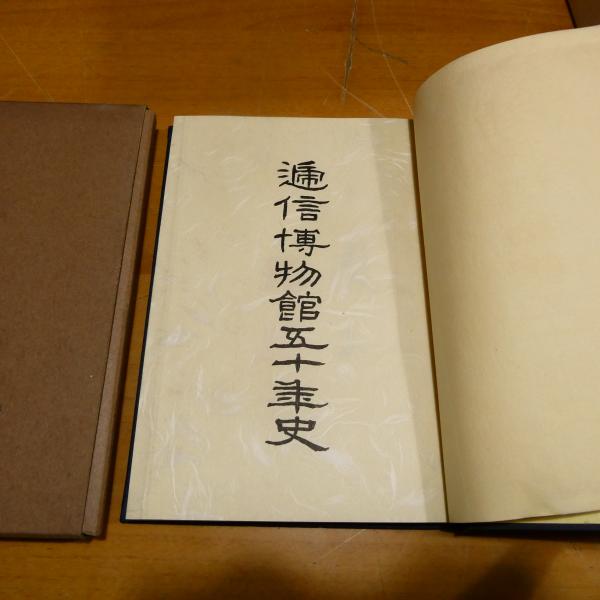 逓信博物館五十年史